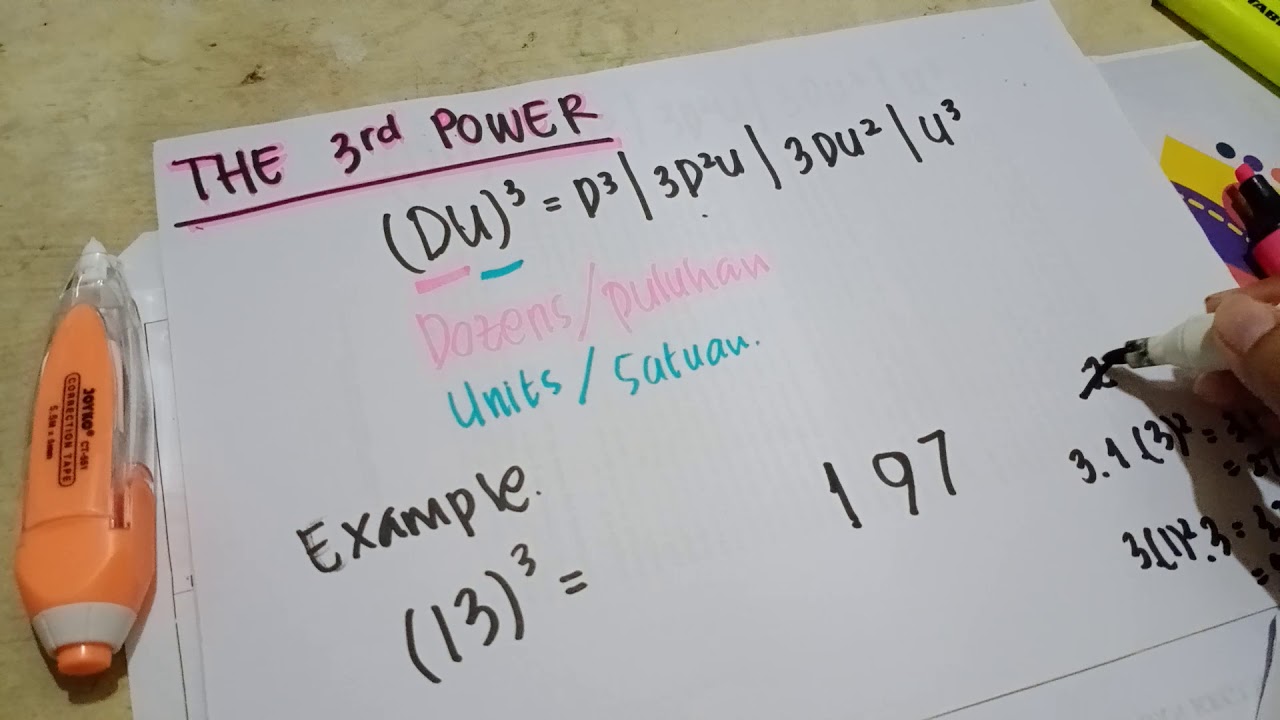 THE 3rd POWER
(DU)³ = D³ | 3D²U | 3DU² | U³
Dozens/puluhan
Units/Satuan.
Example.
(13)³ =
197
3.1(3)² =
=
3(1)².3 =
=
JOYKO® CT-561
CORRECTION TAPE